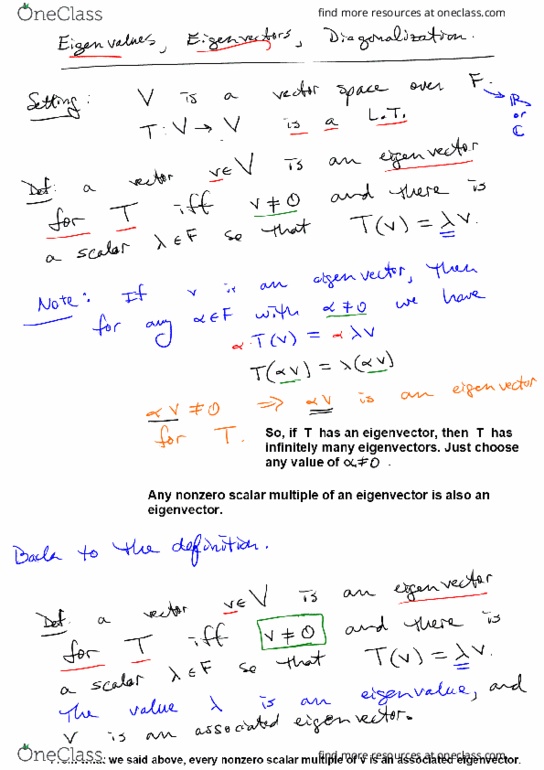 OneClass
find more resources at oneclass.com
Eigenvalues, Eigenvectors, Diagonalization.
Setting: V is a vector space over F.
ℝ
or
ℂ
T: V → V is a L.T.
Def: a vector v∈V is an eigenvector
for T iff v ≠ 0 and there is
a scalar λ∈F so that T(v) = λv.
Note: If v is an eigenvector, then
for any α∈F with α≠0 we have
α·T(v) = αλv
T(αv) = λ(αv)
αv ≠ 0 ⇒ αv is an eigenvector
for T.
So, if T has an eigenvector, then T has
infinitely many eigenvectors. Just choose
any value of α≠0 .
Any nonzero scalar multiple of an eigenvector is also an
eigenvector.
Back to the definition.
Def: a vector v∈V is an eigenvector
for T iff v ≠ 0 and there is
a scalar λ∈F so that T(v) = λv.
The value λ is an eigenvalue, and
v is an associated eigenvector.
we said above, every nonzero scalar multiple of v is an associated eigenvector.
OneClass
find more resources at oneclass.com